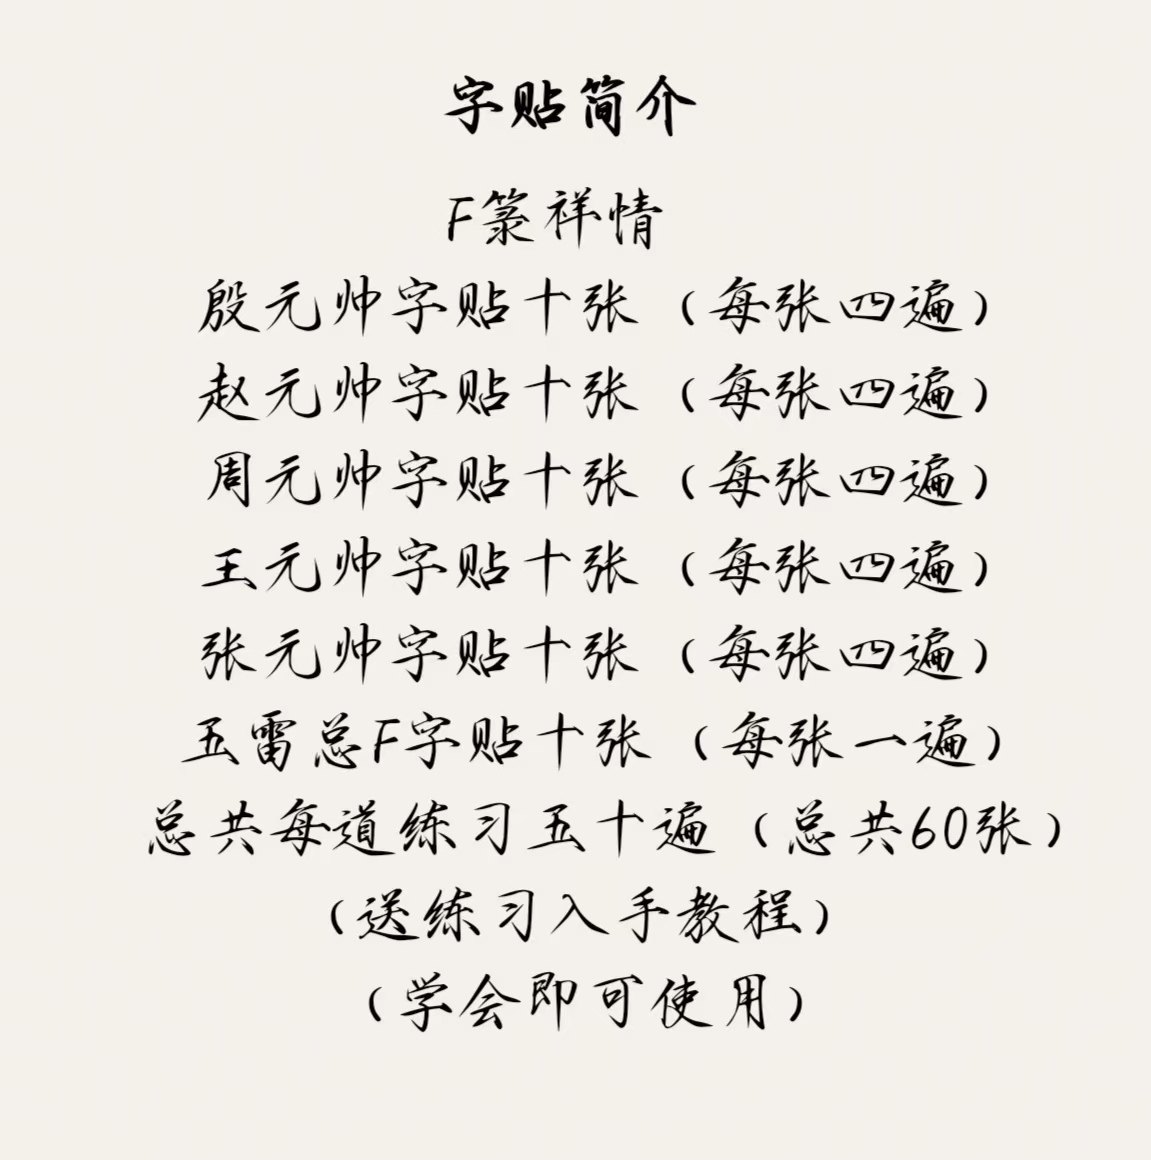 字贴简介
F箓祥情
殷元帅字贴十张（每张四遍）
赵元帅字贴十张（每张四遍）
周元帅字贴十张（每张四遍）
王元帅字贴十张（每张四遍）
张元帅字贴十张（每张四遍）
五雷总F字贴十张（每张一遍）
总共每道练习五十遍（总共60张）
（送练习入手教程）
（学会即可使用）